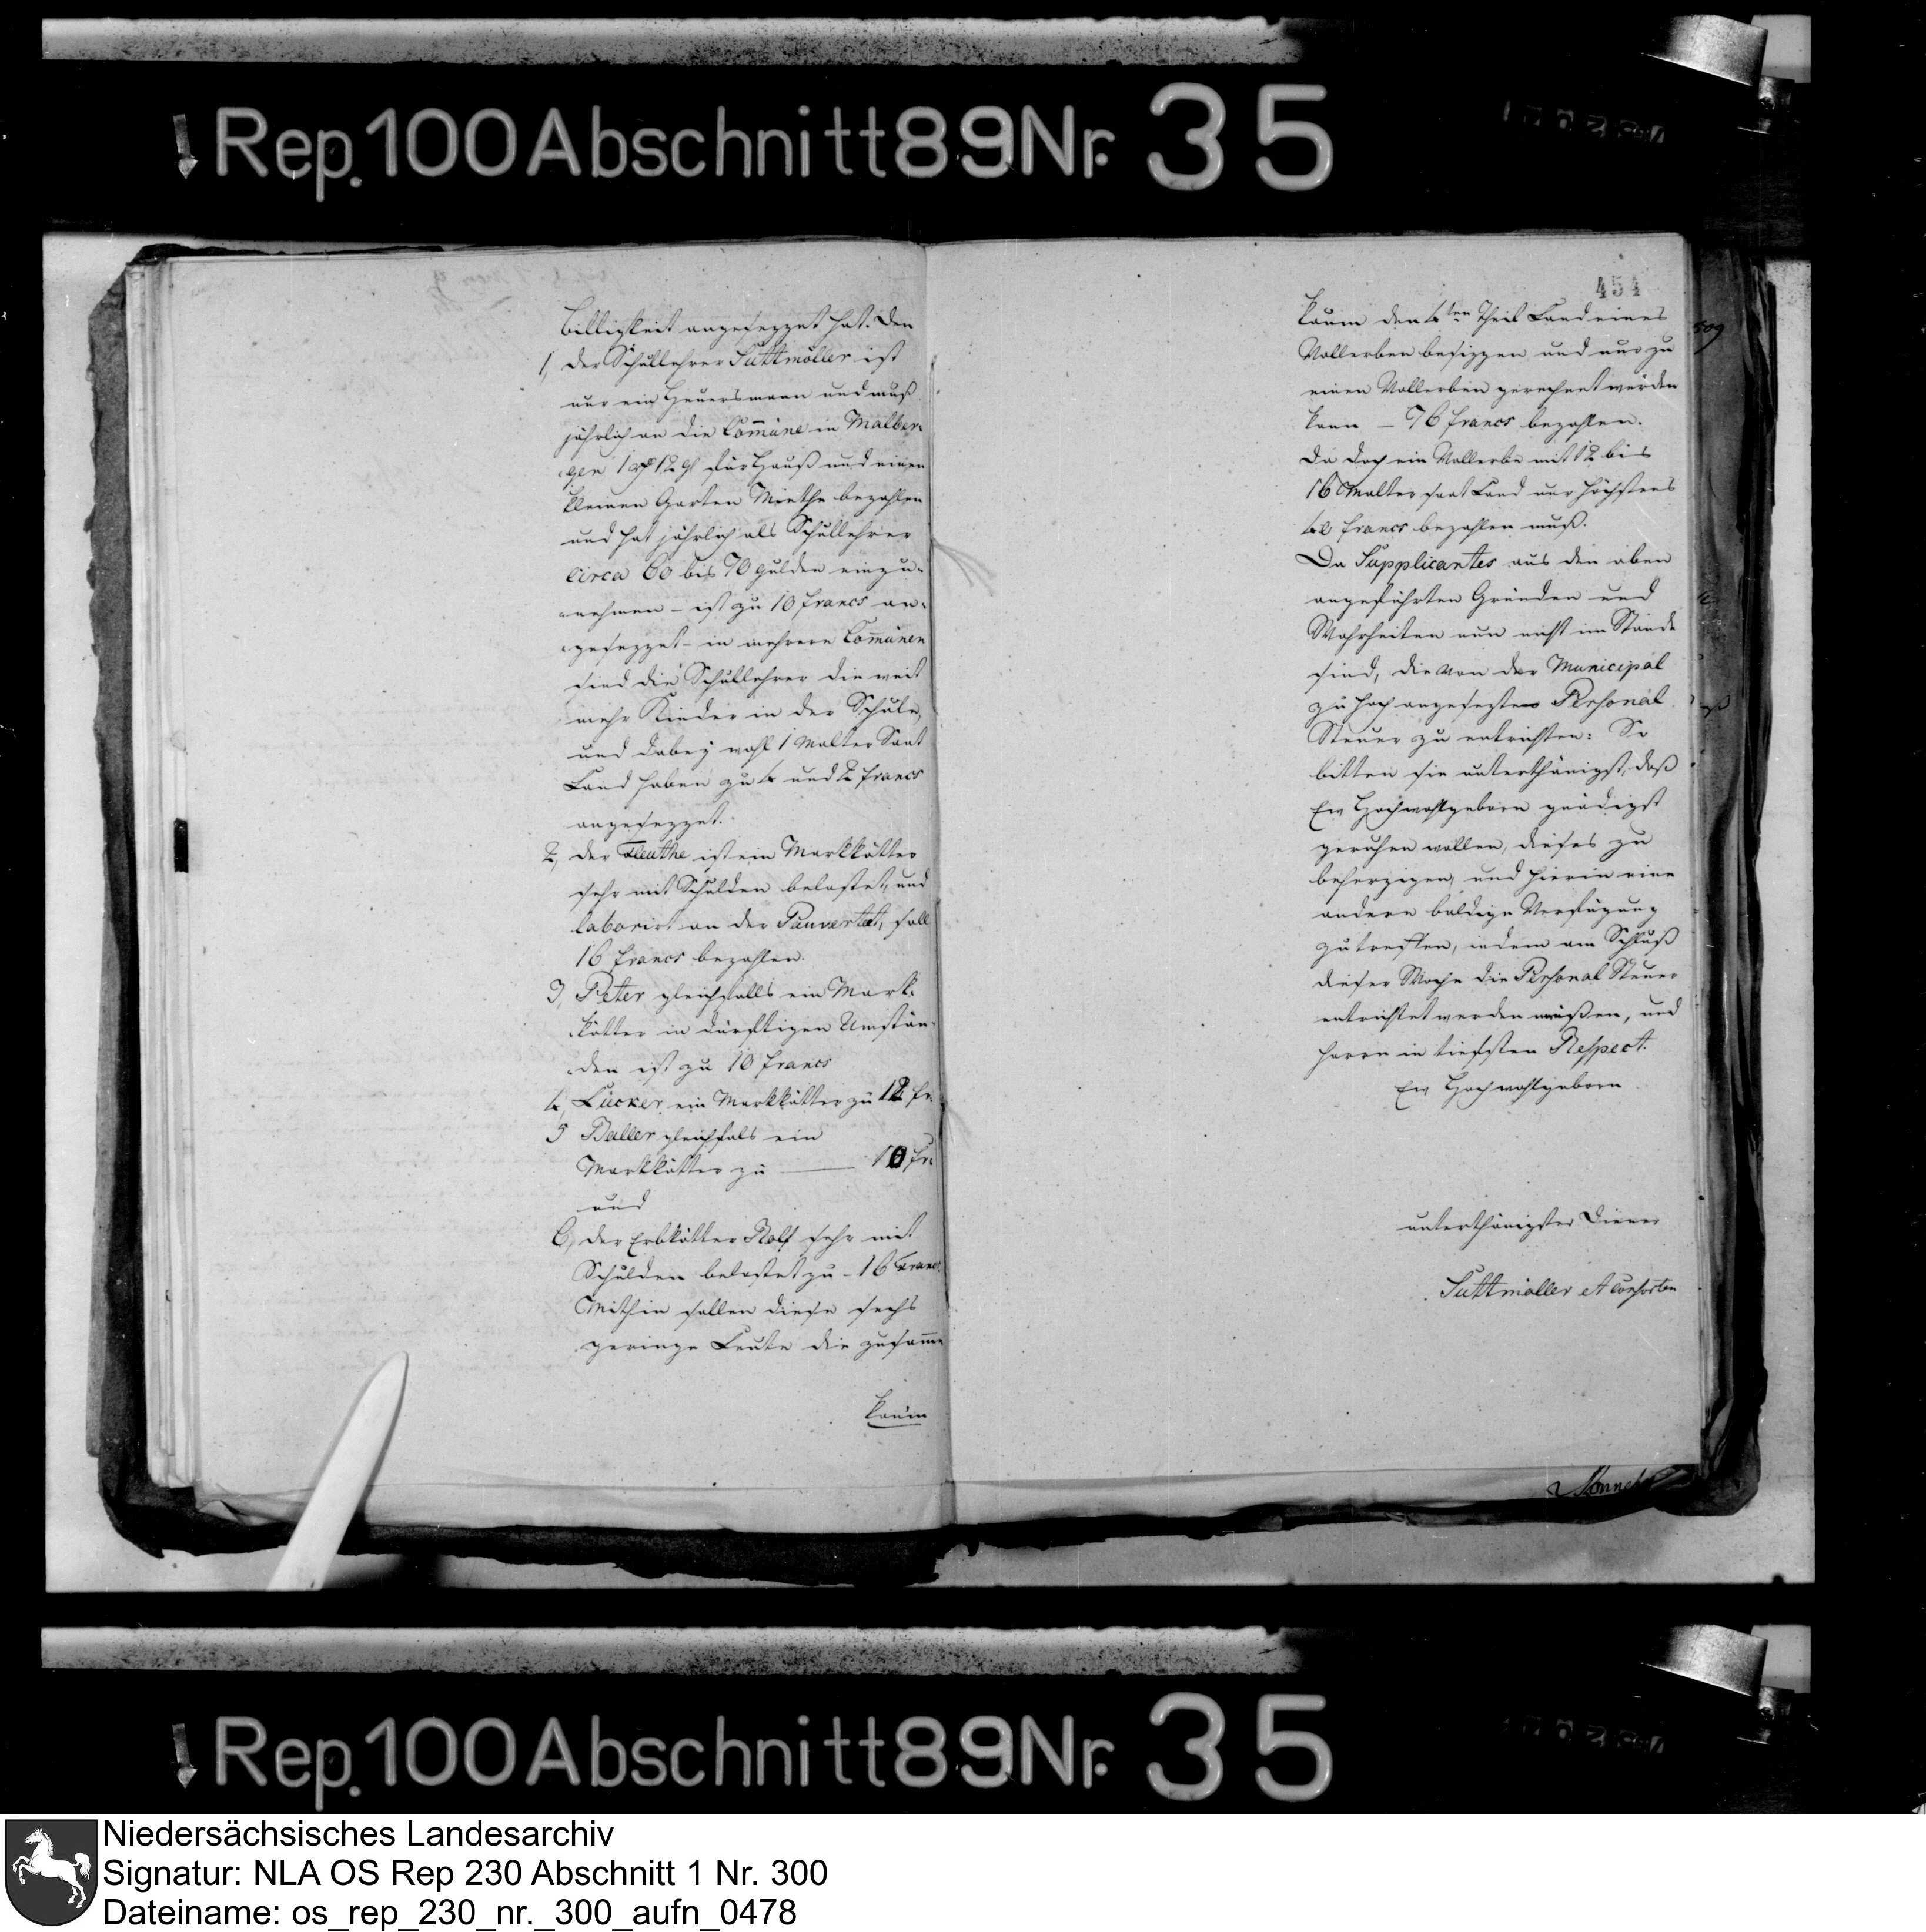 Rep. 100 Abschnitt 89 Nr. 35
Billigkeit angesezzet hat. Den
1, der Schullehrer Suttmöller ist
nur ein Heuersmann und muß
jährlich an die Com̄üne in Malber-
gen 1 rt 12 gl für Hauß und einen
kleinen Garten Miethe bezahlen
und hat jährlich als Schullehrer
circa 60 bis 70 Gulden einzu-
nehmen - ist zu 10 francs an-
gesezzet - in mehrere Com̄ünen
sind die Schullehrer die weit
mehr Kinder in der Schule,
und dabey wohl 1 Malter Saat
Land haben zu 4 und 2 francs
angesezzet.
2, der Fleuthe ist ein Markkötter
sehr mit Schulden belastet, und
laborirt an der Pauvertät, soll
16 francs bezahlen.
3, Peter gleichfalls ein Mark-
kötter in dürftigen Umstän-
den ist zu 10 francs
4, Lücker ein Markkötter zu 12 fr.
5 Baller gleichfals ein
Markkötter zu — 10 fr.
und
6, der Erbkötter Rolf sehr mit
Schulden belastet zu - 16 Francs.
Mithin sollen diese sechs
geringe Leute die zusam̄en
kaum
454
kaum den 4ten Theil Land eines
Vollerben besizzen und nur zu
einen Vollerben gerechnet werden
kann — 76 francs bezahlen.
Da doch ein Vollerbe mit 12 bis
16 Malter saat Land nur höchstens
42 francs bezahlen muß.
Da Supplicantes aus den oben
angeführten Gründen und
Wahrheiten nun nicht im Stande
sind, die von der Municipal
zu hoch angesezten Personal
Steuer zu entrichten: So
bitten sie unterthänigst, daß
Ew Hochwohlgeborn gnädigst
geruhen wollen, dieses zu
beherzigen, und hierin eine
andere baldige Verfügung
zu treffen, indem am Schluß
dieser Woche die Personal Steuer
entrichtet werden müßen, und
harren in tiefsten Respect.
Ew Hochwohlgeborn
unterthänigster Diener
Suttmöller et Consorten
509
Rep. 100 Abschnitt 89 Nr. 35
Niedersächsisches Landesarchiv
Signatur: NLA OS Rep 230 Abschnitt 1 Nr. 300
Dateiname: os_rep_230_nr._300_aufn_0478